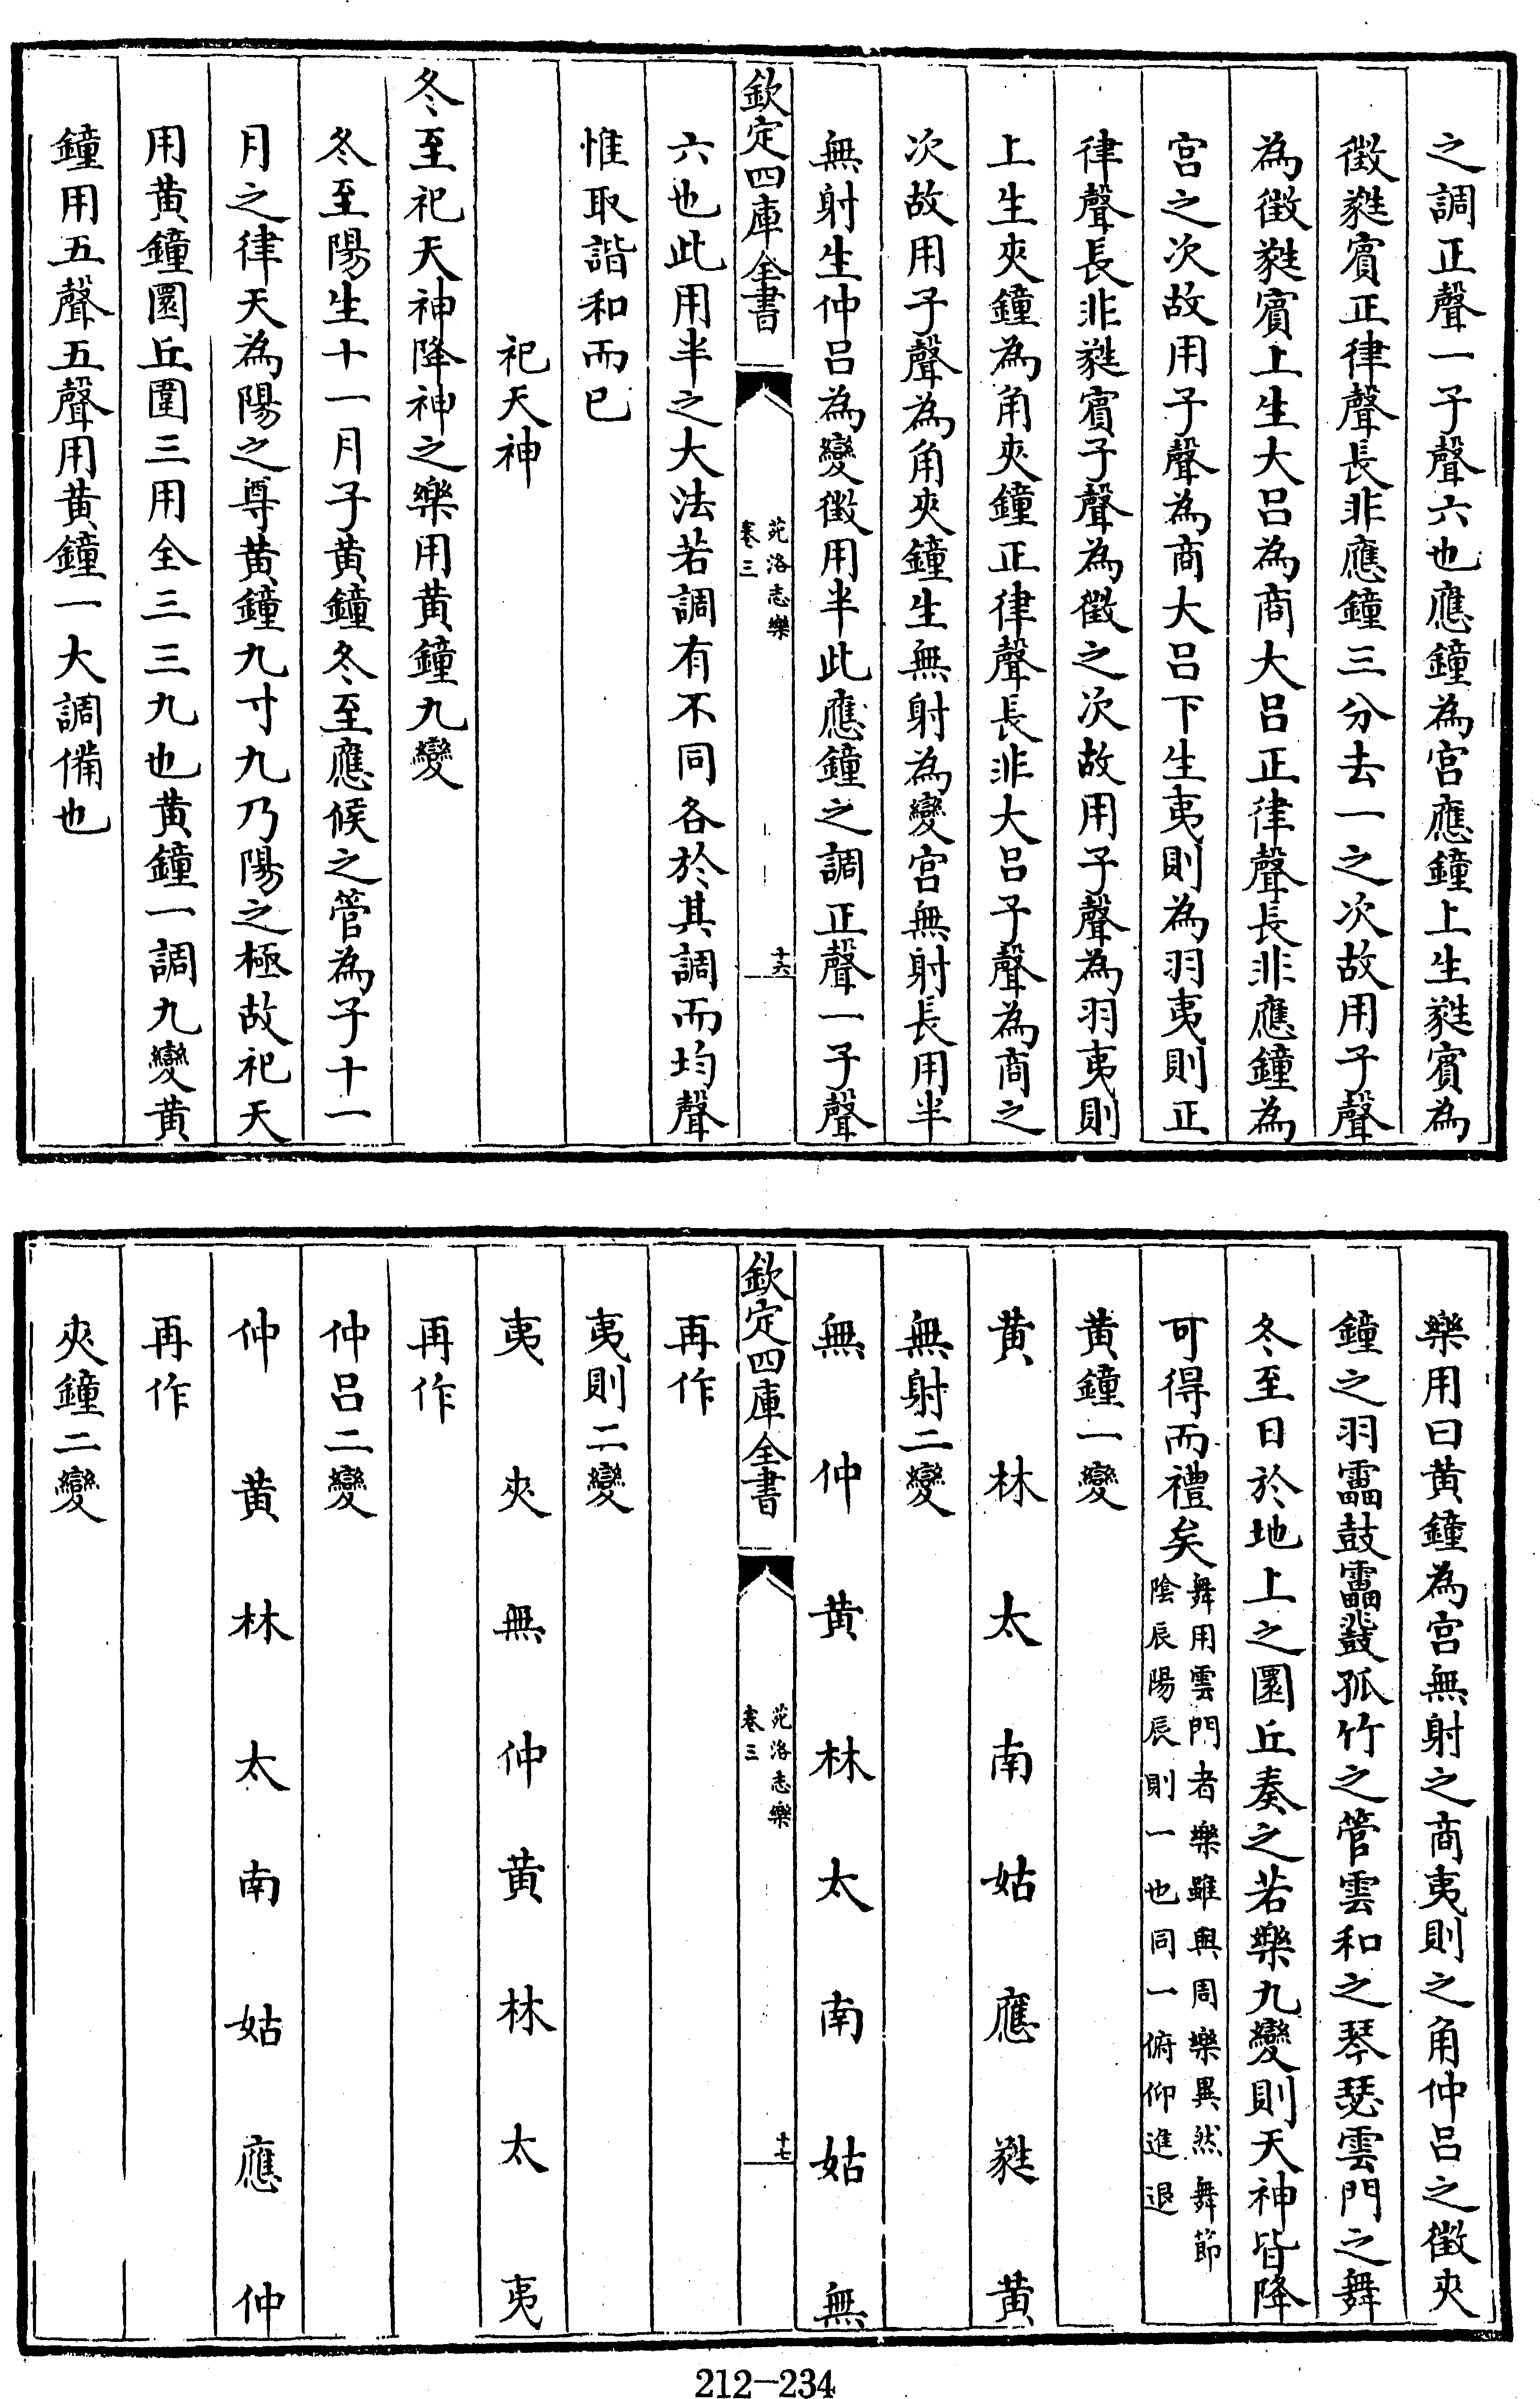 之調正聲一子聲六也應鐘為宫應鐘上生蕤賓為
徵蕤賓正律聲長非應鐘三分去一之次故用子聲
為徵蕤賓上生大吕為商大吕正律聲長非應鐘為
宫之次故用子聲為商大吕下生夷則為羽夷則正
律聲長非蕤賓子聲為徵之次故用子聲為羽夷則
上生夾鐘為角夾鐘正律聲長非大吕子聲為商之
次故用子聲為角夾鐘生無射為變宫無射長用半
無射生仲吕為變徵用半此應鐘之調正聲一子聲
欽定四庫全書
苑洛志樂
卷三
十六
六也此用半之大法若調有不同各於其調而均聲
惟取諧和而已
祀天神
冬至祀天神降神之樂用黄鐘九變
冬至陽生十一月子黄鐘冬至應候之管為子十一
月之律天為陽之尊黄鐘九寸九乃陽之極故祀天
用黄鐘圜丘圍三用全三三九也黄鐘一調九變黄
鐘用五聲五聲用黄鐘一大調備也
樂用曰黄鐘為宫無射之商夷則之角仲吕之徵夾
鐘之羽靁鼓靁鼗孤竹之管雲和之琴瑟雲門之舞
冬至日於地上之圜丘奏之若樂九變則天神皆降
可得而禮矣
舞用雲門者樂雖與周樂異然舞節
陰辰陽辰則一也同一俯仰進退
黄鐘一變
黄林太南姑應蕤黄
無射二變
無仲黄林太南姑無
欽定四庫全書
苑洛志樂
卷三
十七
再作
夷則二變
夷夾無仲黄林太夷
再作
仲吕二變
仲黄林太南姑應仲
再作
夾鐘二變
212-234